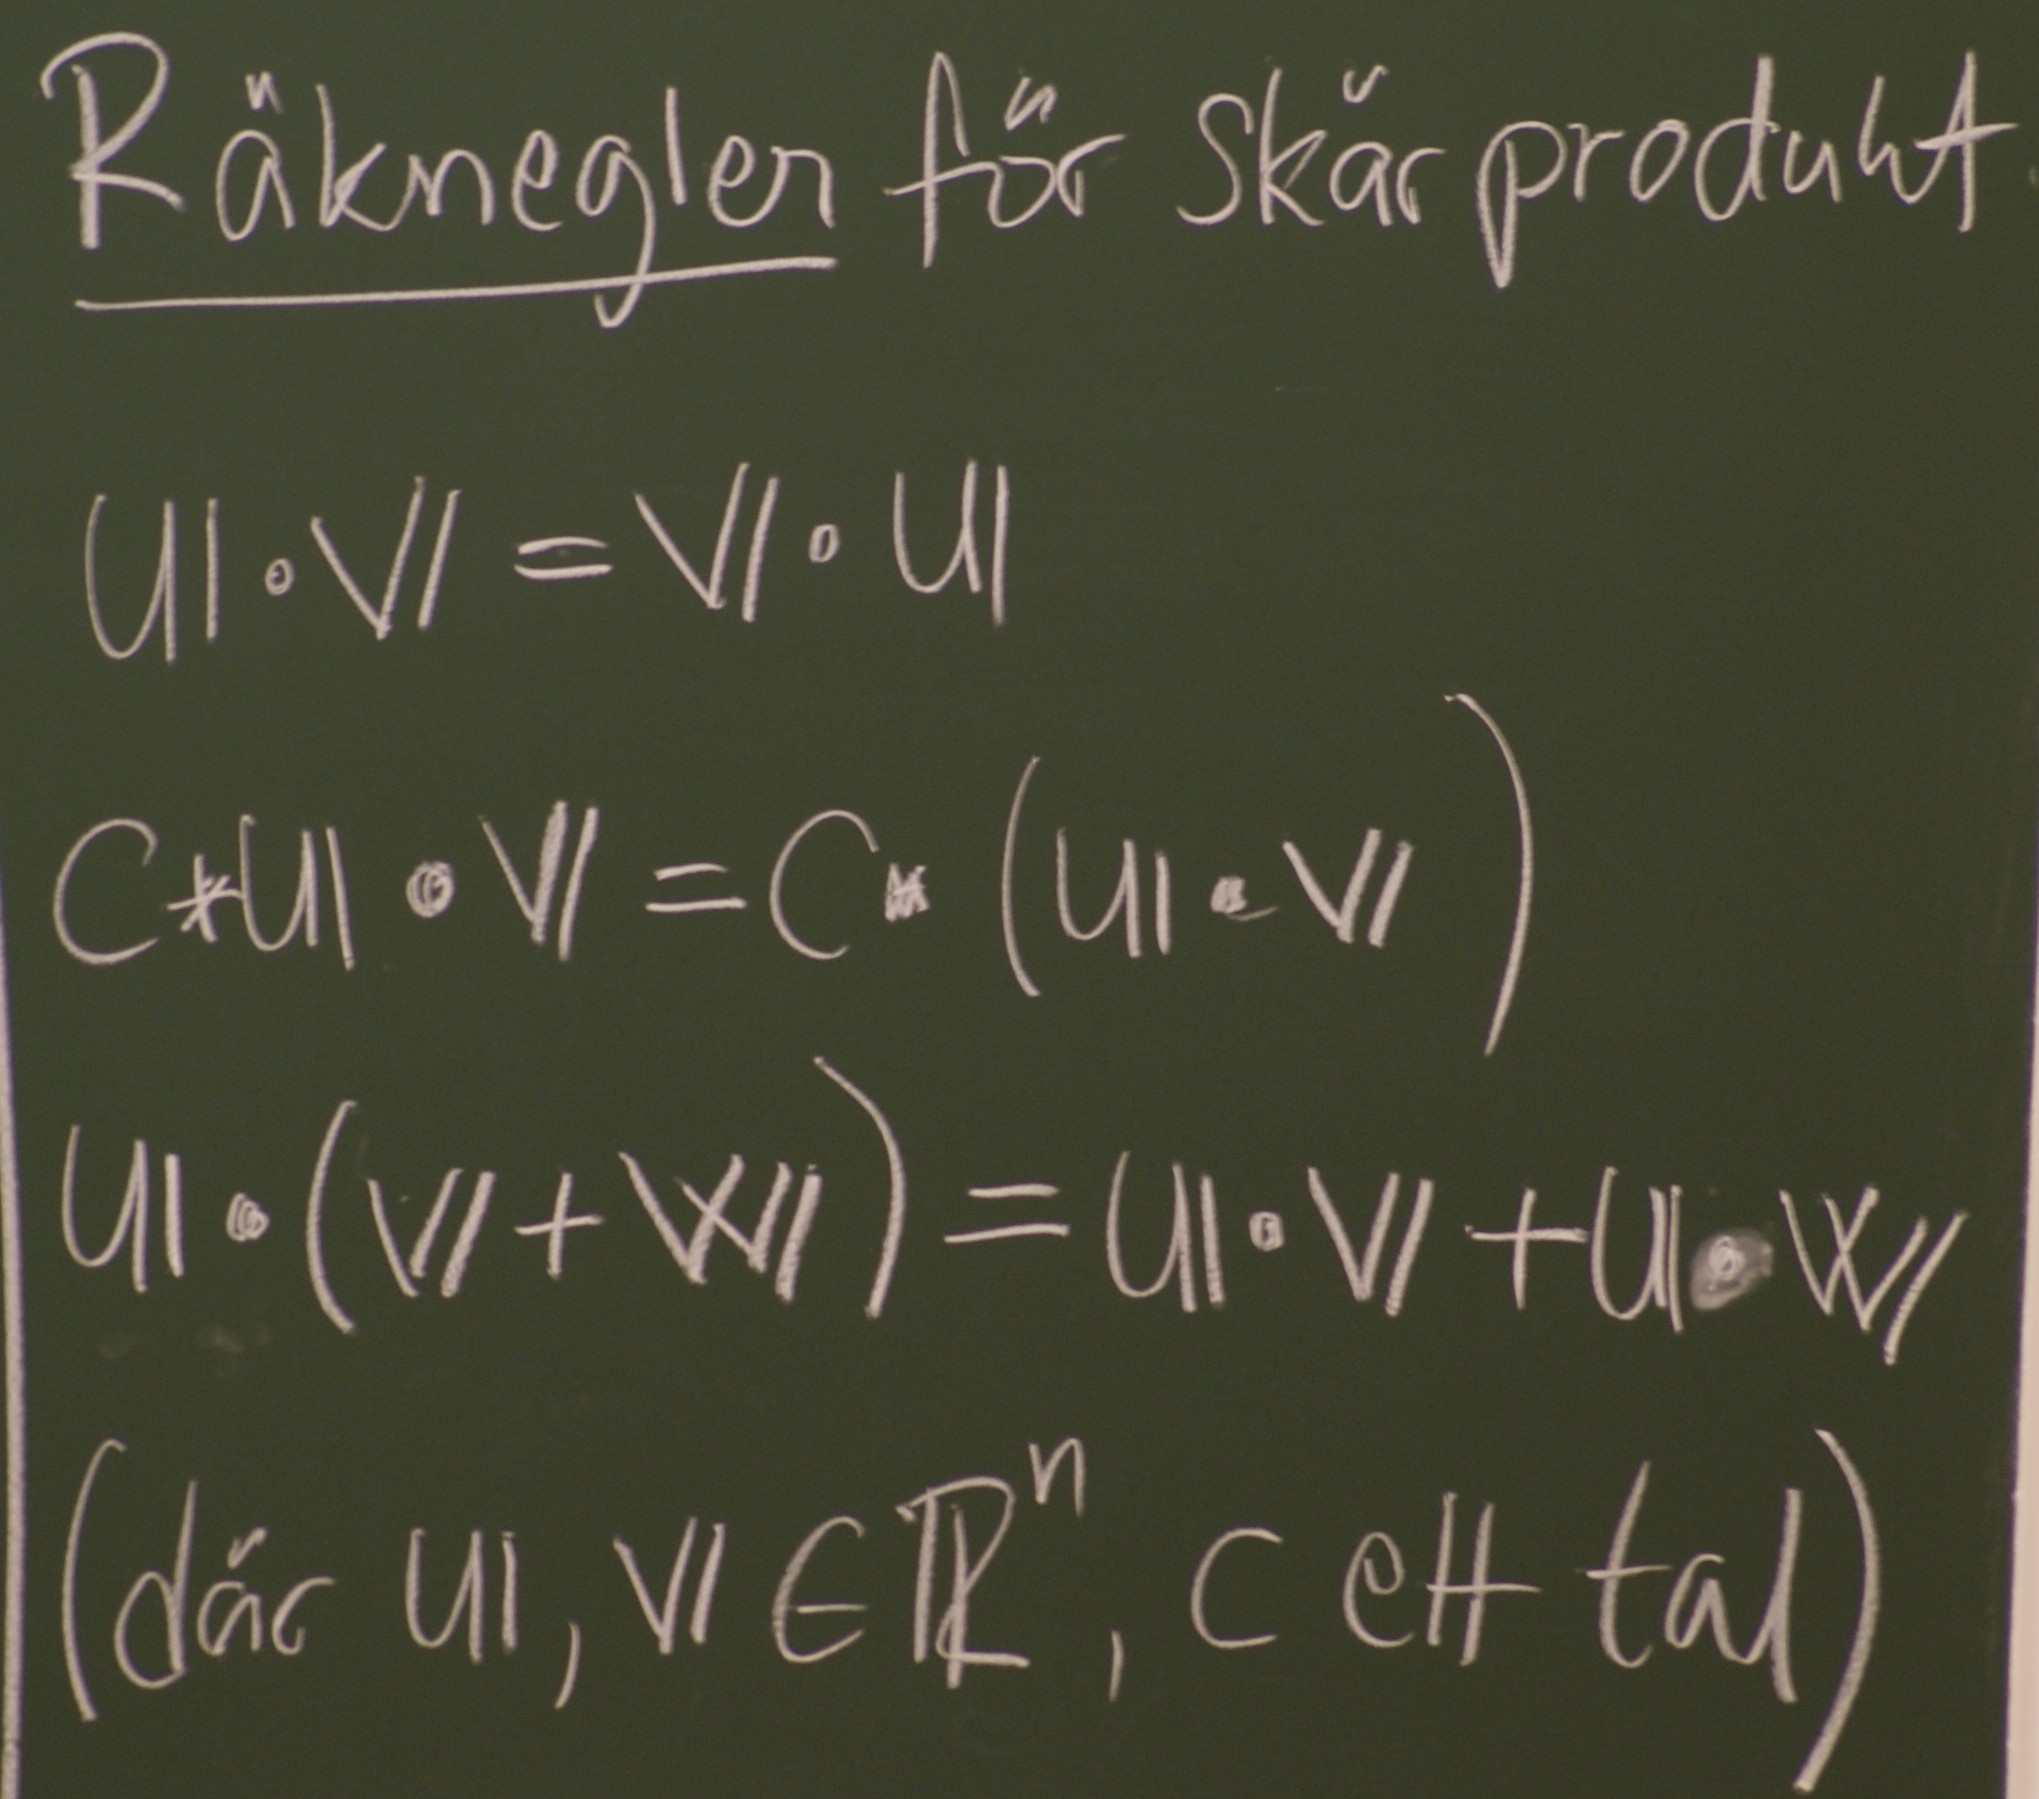 Räknegler för skärprodukt.
𝕌 • 𝕍 = 𝕍 • 𝕌
C * 𝕌 • 𝕍 = C * (𝕌 • 𝕍)
𝕌 • (𝕍 + 𝕎) = 𝕌 • 𝕍 + 𝕌 • 𝕎
(där 𝕌, 𝕍 ∈ ℝⁿ, C ett tal)